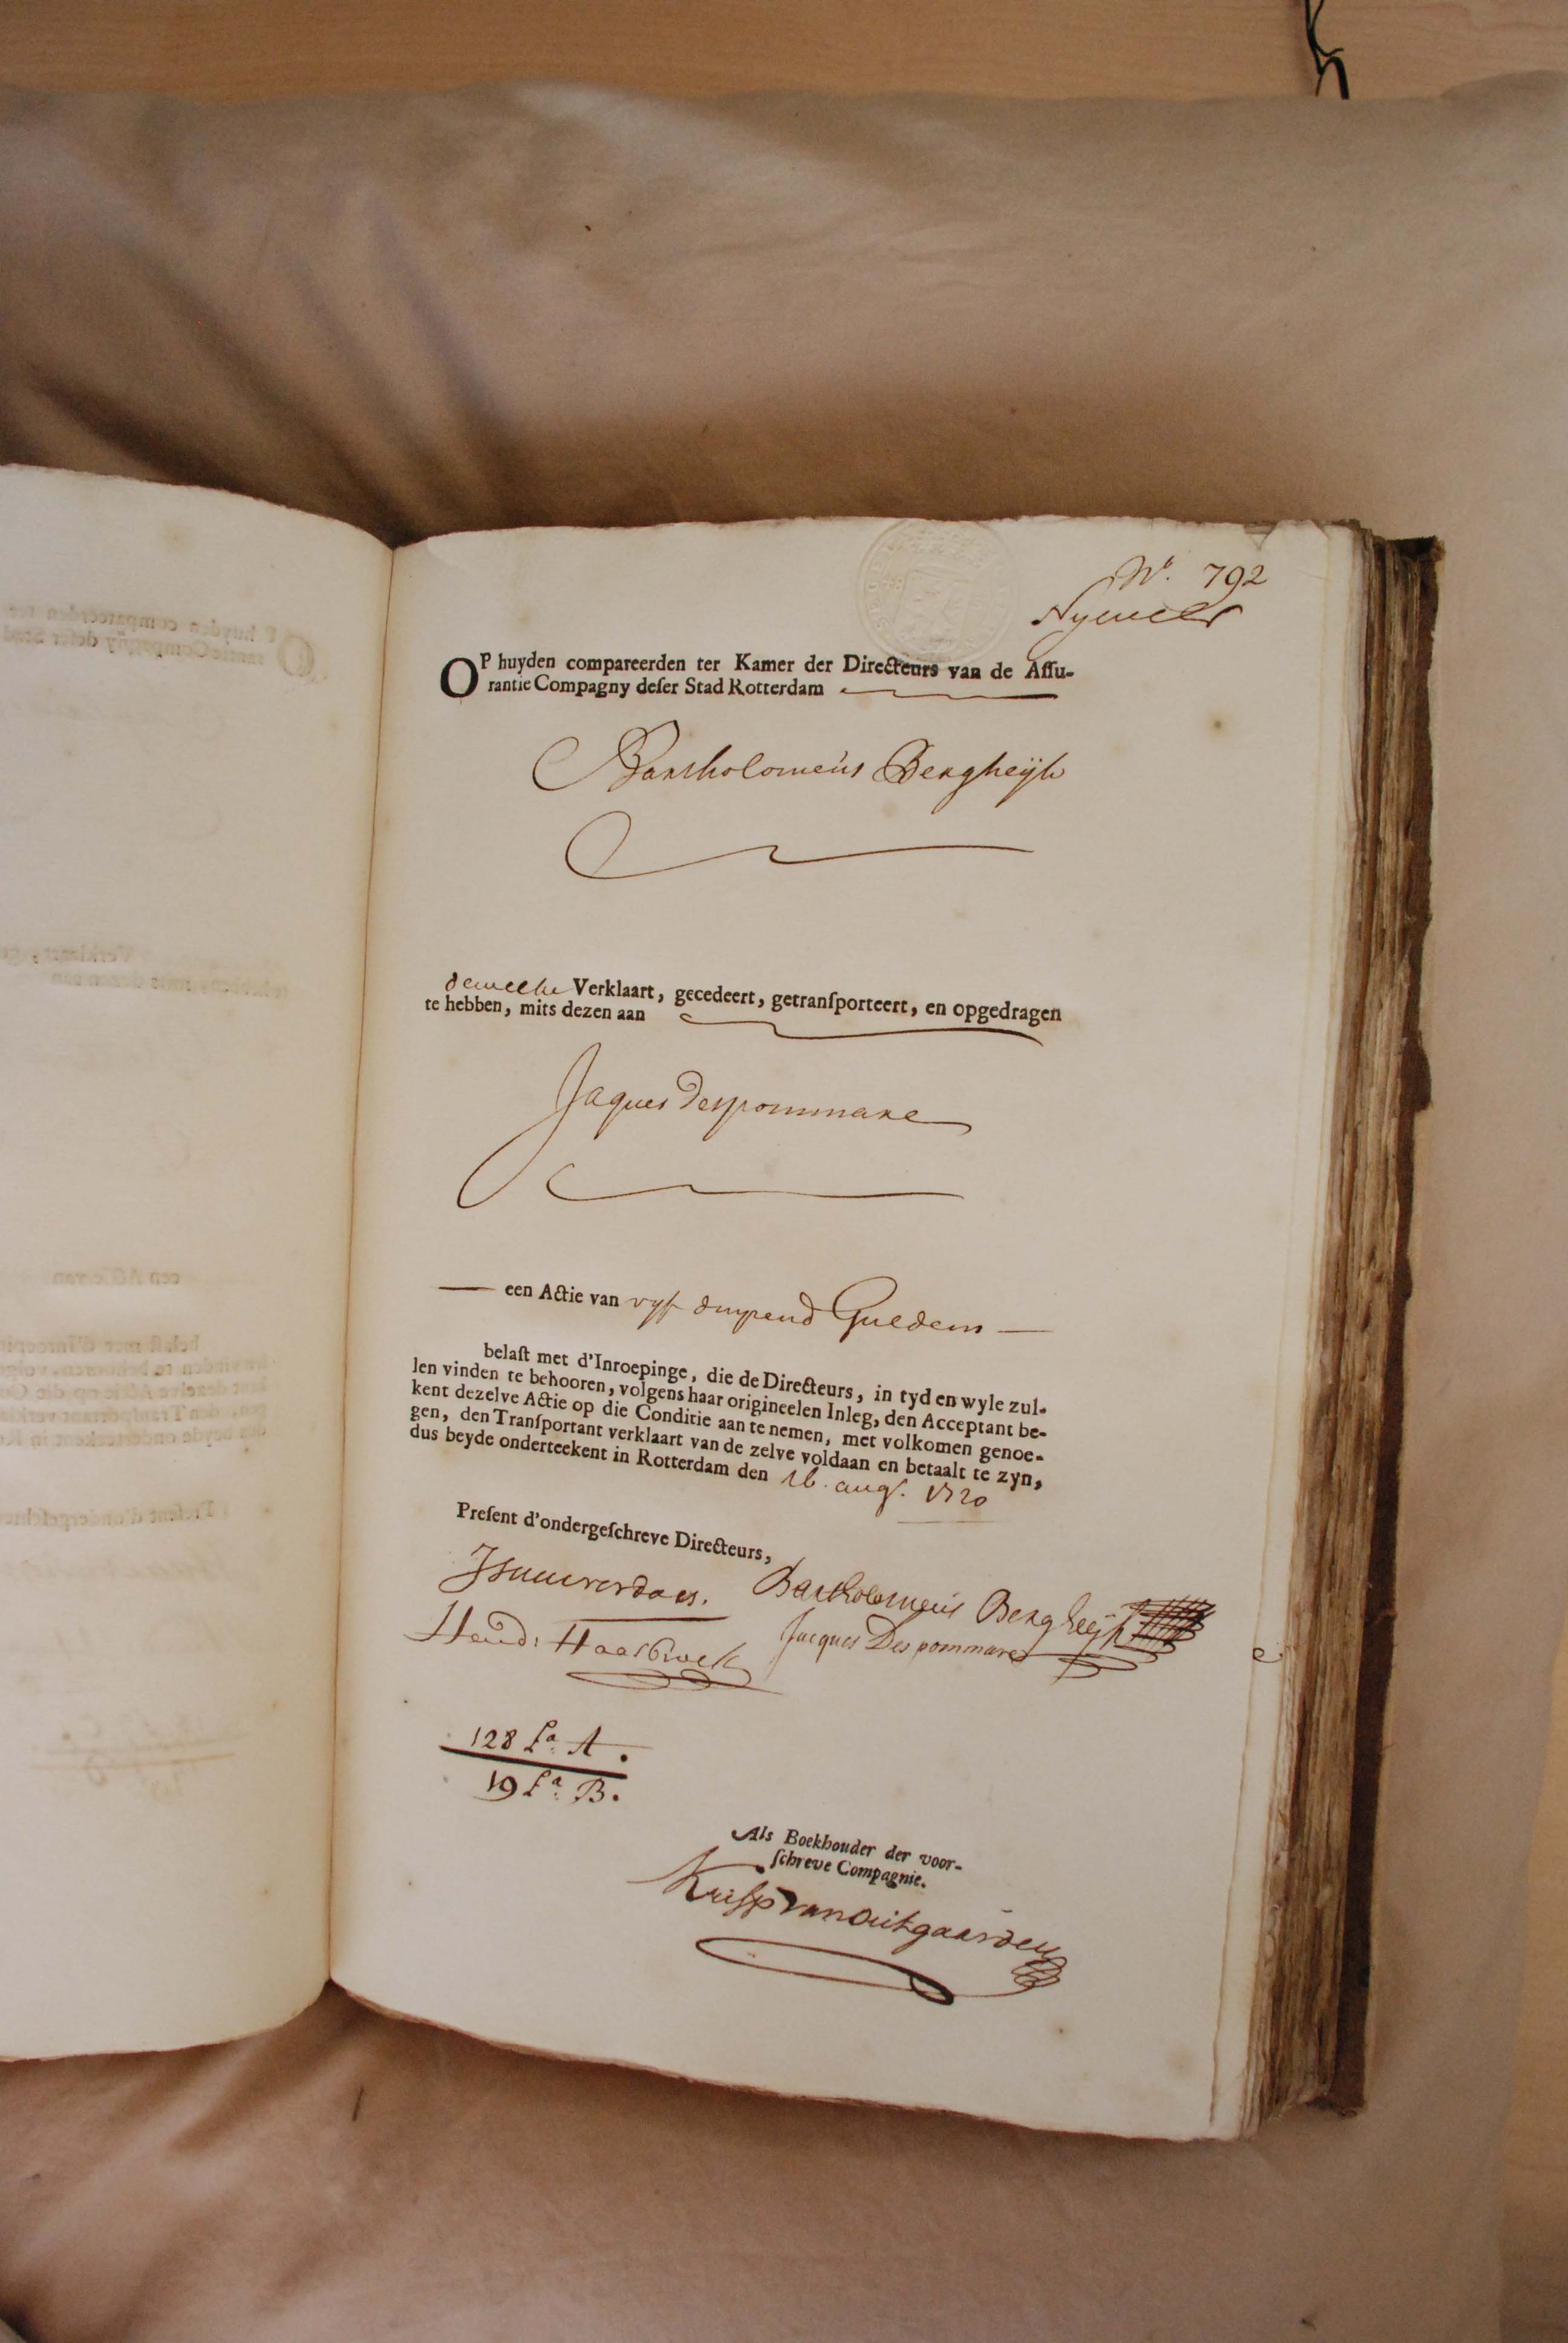 N.º 792
OP huyden compareerden ter Kamer der Directeurs van de Aſſu-
rantie Compagny deſer Stad Rotterdam
Bartholomeùs Bergheÿk
dewelke Verklaart, gecedeert, getranſporteert, en opgedragen
te hebben, mits dezen aan
Jaques Despommare
een Actie van vyf duysend Guldens
belaſt met d'Inroepinge, die de Directeurs, in tyd en wyle zul-
len vinden te behooren, volgens haar origineelen Inleg, den Acceptant be-
kent dezelve Actie op die Conditie aan te nemen, met volkomen genoe-
gen, den Tranſportant verklaart van de zelve voldaan en betaalt te zyn,
dus beyde onderteekent in Rotterdam den 16. aug. 1720
Preſent d'ondergeſchreve Directeurs,
Bartholomeùs Bergheÿk
Hend: Haasbroek Jacques Despommare
128 L.ª A.
19 L.ª B.
Als Boekhouder der voor-
ſchreve Compagnie.